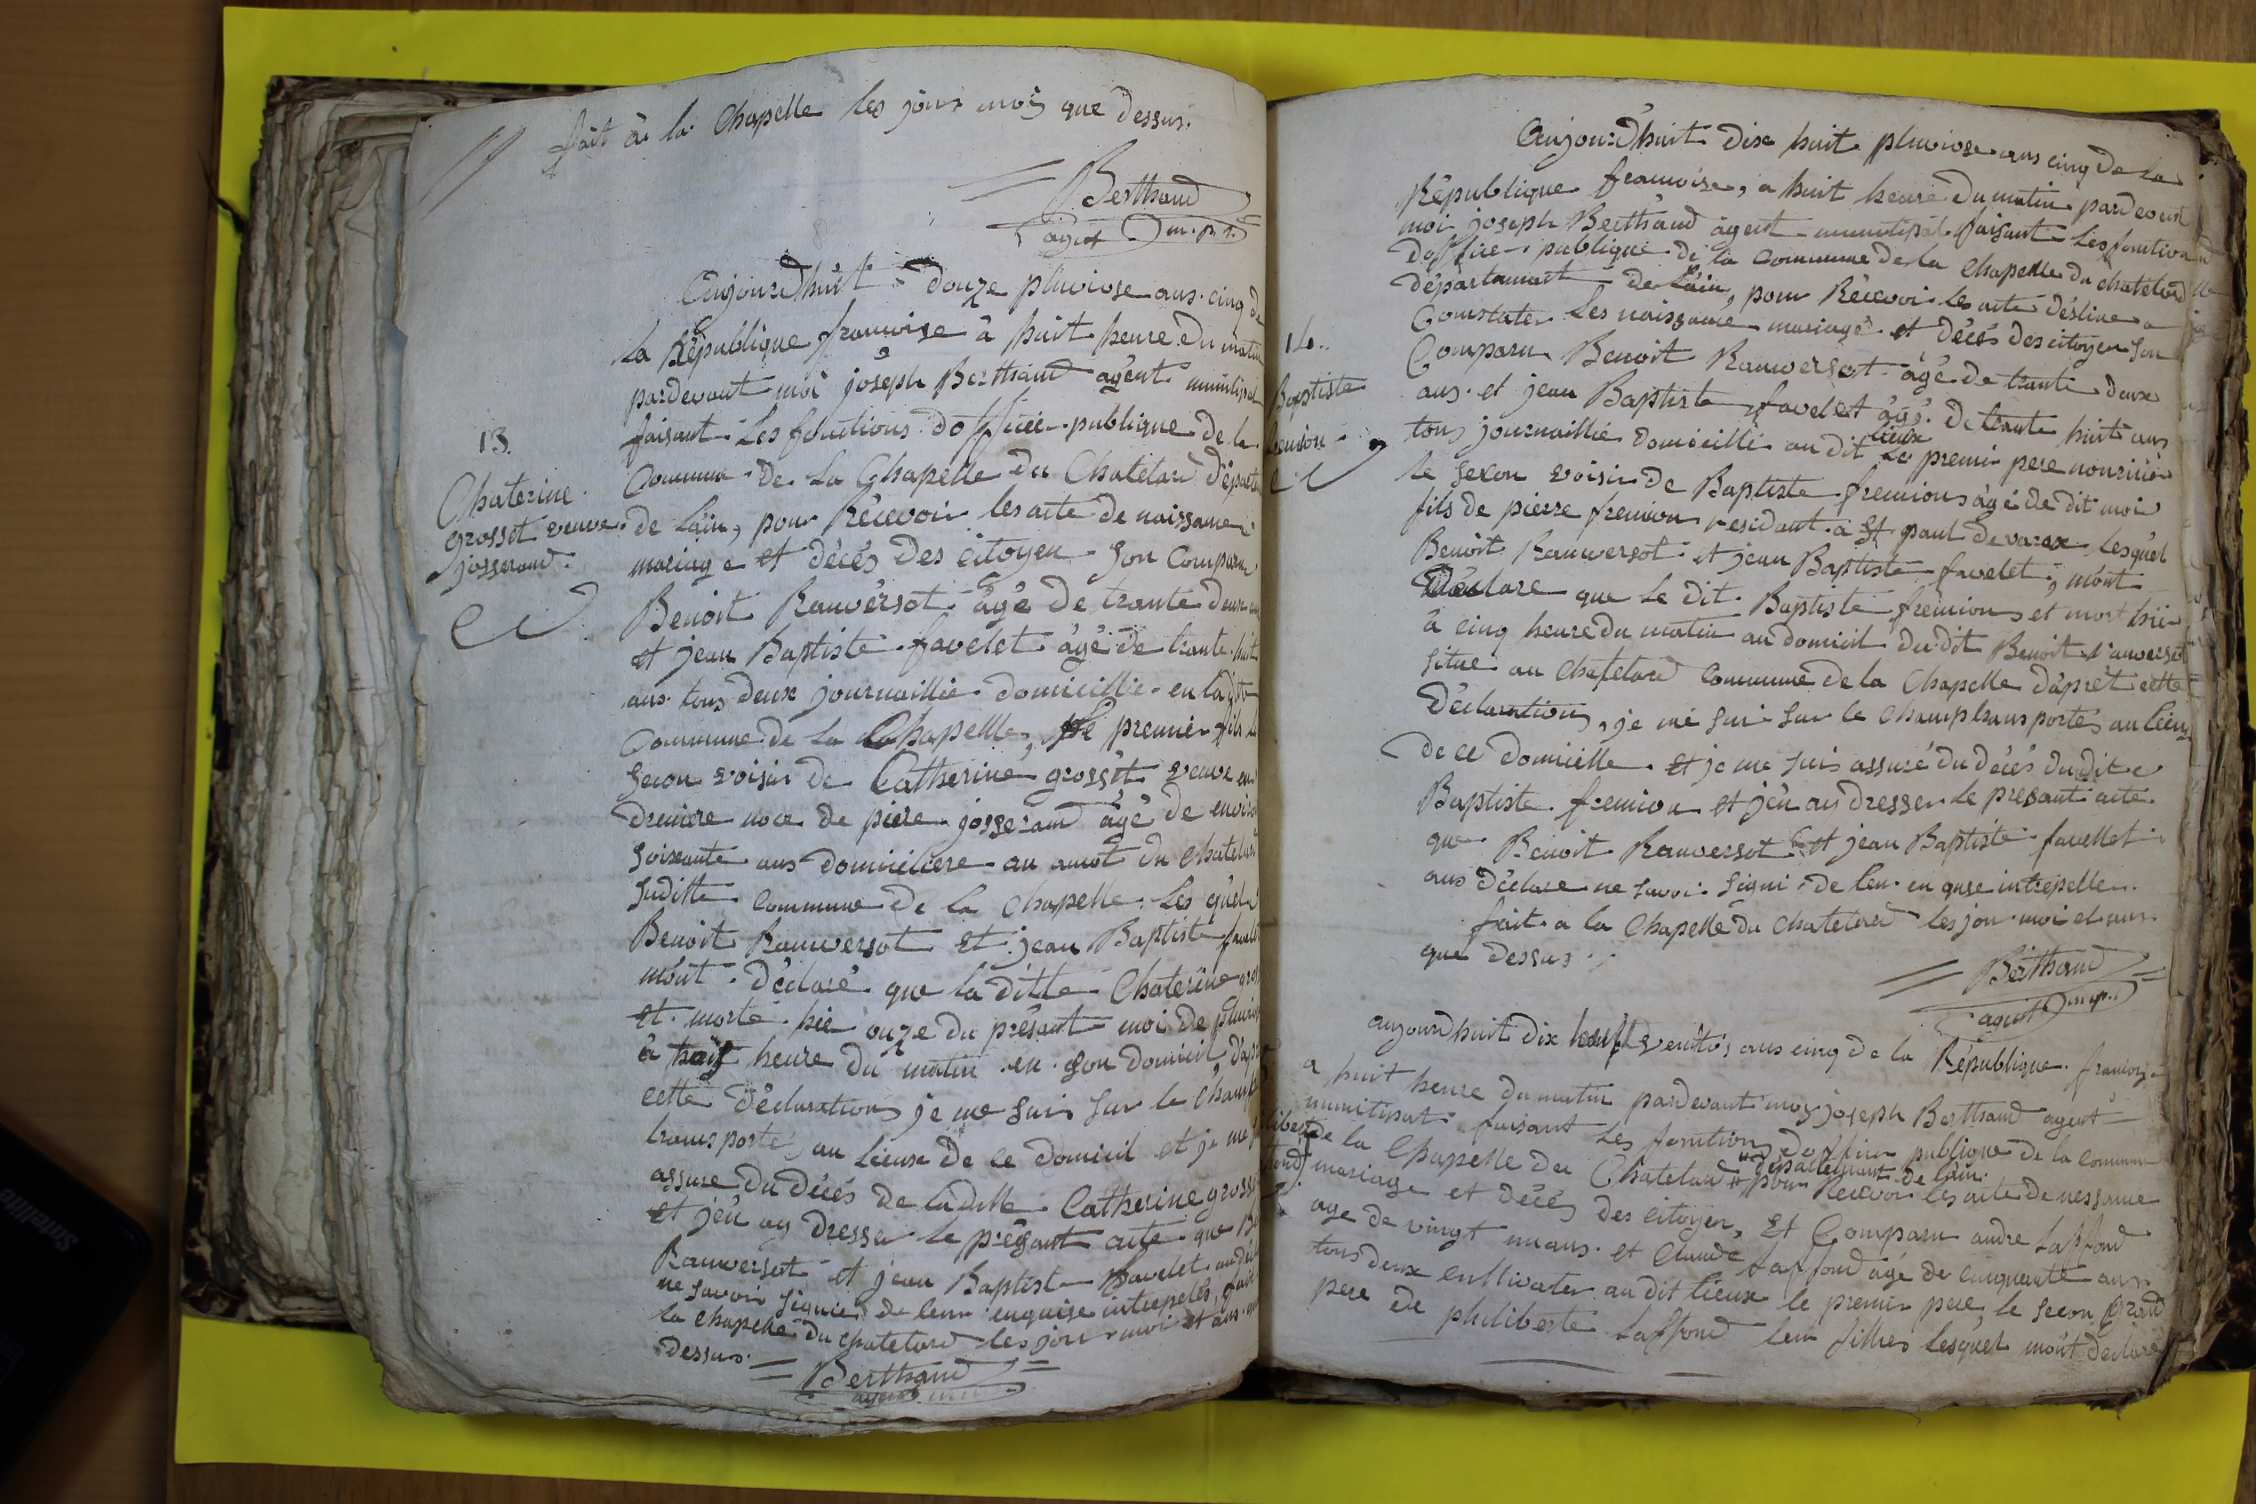 fait à la Chapelle les jour mois que dessus.
Berthaud
agent m.p.l.
Aujourdhuit douze pluviose ans cinq de
la République francoise à huit heure du matin
pardevant moi joseph Berthaud agent municipal
faisant les fonctions dofficié publique de la
13.
Commune de la Chapelle du Chatelard départe
Chaterine
grosset veuve
josserand.
de lain, pour Récevoir les acte de naissance
mariage et décés des citoyen son Comparu
Benoit Rauversot âgé de trante deux ans
et jean Baptiste favelet âgé de trante huit
ans tous deux journaillié domicillié en la ditte
Commune de la Chapelle, le premier fils le
secon voisin de Catherine grosset veuve en
dreniere noce de piere josserand âgé de environ
soixante ans domiciliere au amot du chatelard
suditte Commune de la Chapelle. Les quel
Benoit Rauversot et jean Baptiste favelet
mont déclaré que la ditte Chaterine gross
et morte hie onze du présant moi de pluvios
à huit heure du matin en son domicil, dapr
cette déclaration je me suis sur le champ
transporté au lieux de ce domicil et je me
assuré du décés de laditte Catherine grosse
et jen ay dresser le présant acte que Be
Rauversot et jean Baptiste Favelet
ne savoir signier de leur enquise intrepellés, fait
la Chapelle du Chatelard les jour moi et ans que
dessus.
Berthaud
agent
Aujourdhuit dix huit pluviose ans cinq de la
République francoise, a huit heure du matin pardevant
moi joseph Berthaud agent municipal faisant les fonction
dofficié publique de la Commune de la Chapelle du chatelard
départamant de Lain, pour Récevoir les acte destiné a
Constater les naissance mariage et décés des citoyen son
14.
Comparu Benoit Rauversot âgé de trante deux
Baptiste
fremion
ans et jean Baptiste favelet âgé de trante huit ans
tous journaillié domicillié au dit lieux le premi pere nouricié
le secon voisin de Baptiste fremion âgé de dit moi
fils de pierre fremion residant a St paul de varax lesquel
Benoit Rauversot et jean Baptiste favelet, mont
Déclare que le dit Baptiste fremion et mort hiér
à cinq heure du matin au domicil dudit Benoit Rauverset
situé au Chatelard Commune de la Chapelle daprét cette
Déclaration, je me suis sur le champ transporté au lieux
de ce domicille et je me suis assuré du décés dudit
Baptiste fremion et jen ai dresser le presant acte
que Benoit Rauversot et jean Baptiste favellet
ans déclare ne savoir signé de leur enquise intrepeller.
fait a la Chapelle du Chatelard les jour moi et ans
que dessus.
Berthaud
agent m.p.
aujourdhuit dix neuf ventôs ans cinq de la République francoise
a huit heure du matin pardevant moy joseph Berthaud agent
municipal faisant les fonction dofficier publique de la Commune
de la Chapelle du Chatelard # pour Recevoir les acte de nessance
# départemant de lain
mariage et décés des citoyen, et Comparu andre Laffond
age de vingt nu ans et Claude Laffond âgé de cinquante ans
tous deux cultivater au dit lieux le premier pere le secon Grand
pere de philiberte Laffond leur filles lesquel mônt déclaré